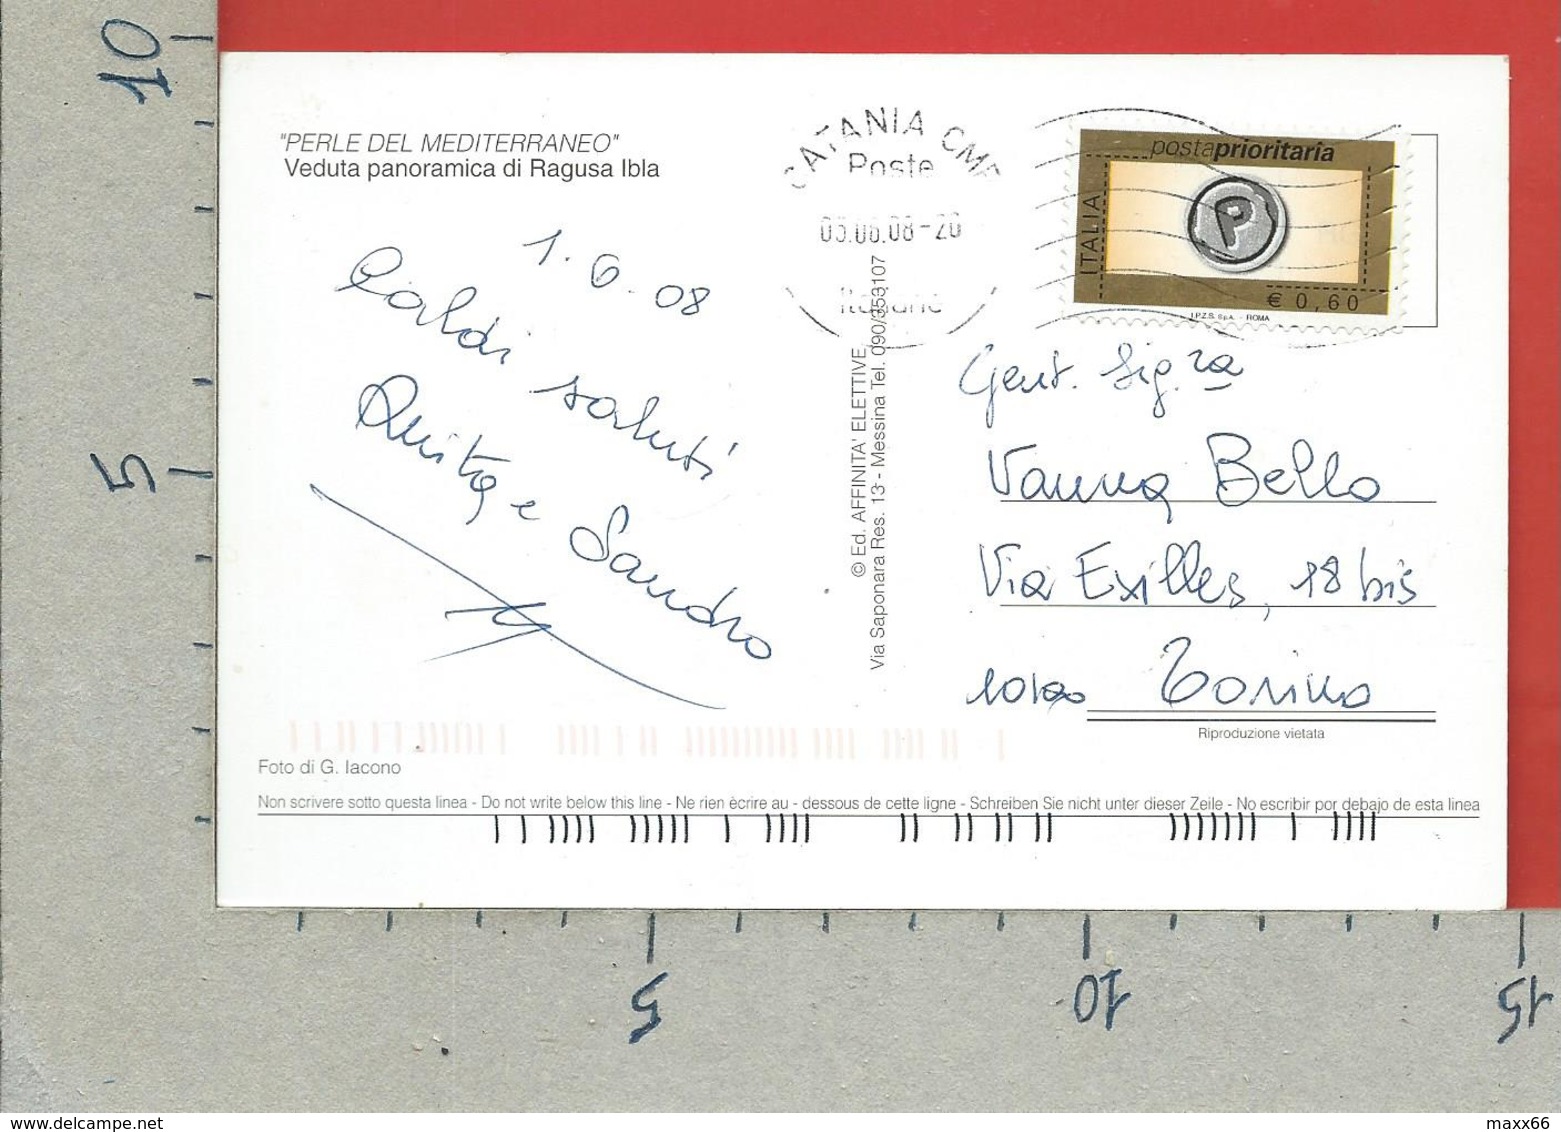 10
5
"PERLE DEL MEDITERRANEO"
Veduta panoramica di Ragusa Ibla
1.6.08
Caldi saluti
Anita e Sandro
CATANIA CMP
Poste
03.06.08-20
Italiane
postaprioritaria
ITALIA
P
€ 0,60
I.P.Z.S. S.p.A. - ROMA
© Ed. AFFINITA' ELETTIVE
Via Saponara Res. 13 - Messina Tel. 090/353107
Gent. Sig.ra
Vanna Bello
Via Exilles, 18 bis
Torino
Riproduzione vietata
Foto di G. Iacono
Non scrivere sotto questa linea - Do not write below this line - Ne rien ècrire au - dessous de cette ligne - Schreiben Sie nicht unter dieser Zeile - No escribir por debajo de esta linea
5
10
15
maxx66
delcampe.net